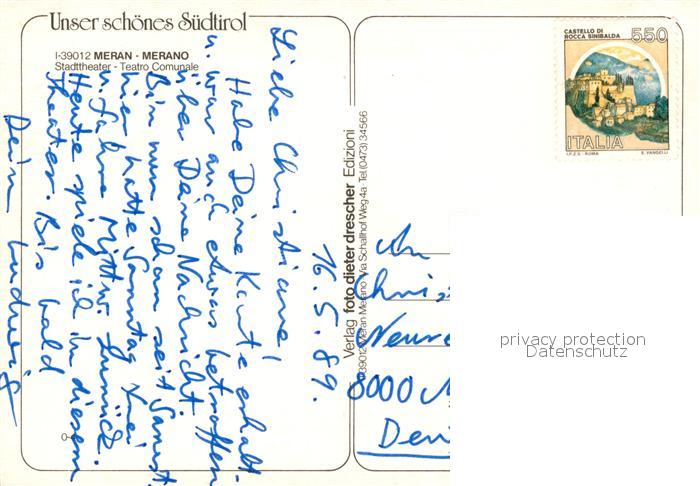 Unser schönes Südtirol
I-39012 MERAN - MERANO
Stadttheater - Teatro Comunale
16.5.89.
Liebe Christiane,
Habe Deine Karte erhalt.
u. war auch etwas betroffen
über Deine Nachricht.
Bin nun schon seit Samst.
hier hatte Sonntag frei
u. fahre Mittw. zurück.
Heute spiele ich in diesem
Theater. Bis bald
Dein Ludwig
Verlag foto dieter drescher Edizioni
39012 Meran Merano Via Schallhof Weg 4a Tel. (0473) 34566
CASTELLO DI
ROCCA SINIBALDA
550
ITALIA
I.P.Z.S. - ROMA E. VANGELLI
An
Chris
8000 M
privacy protection
Datenschutz